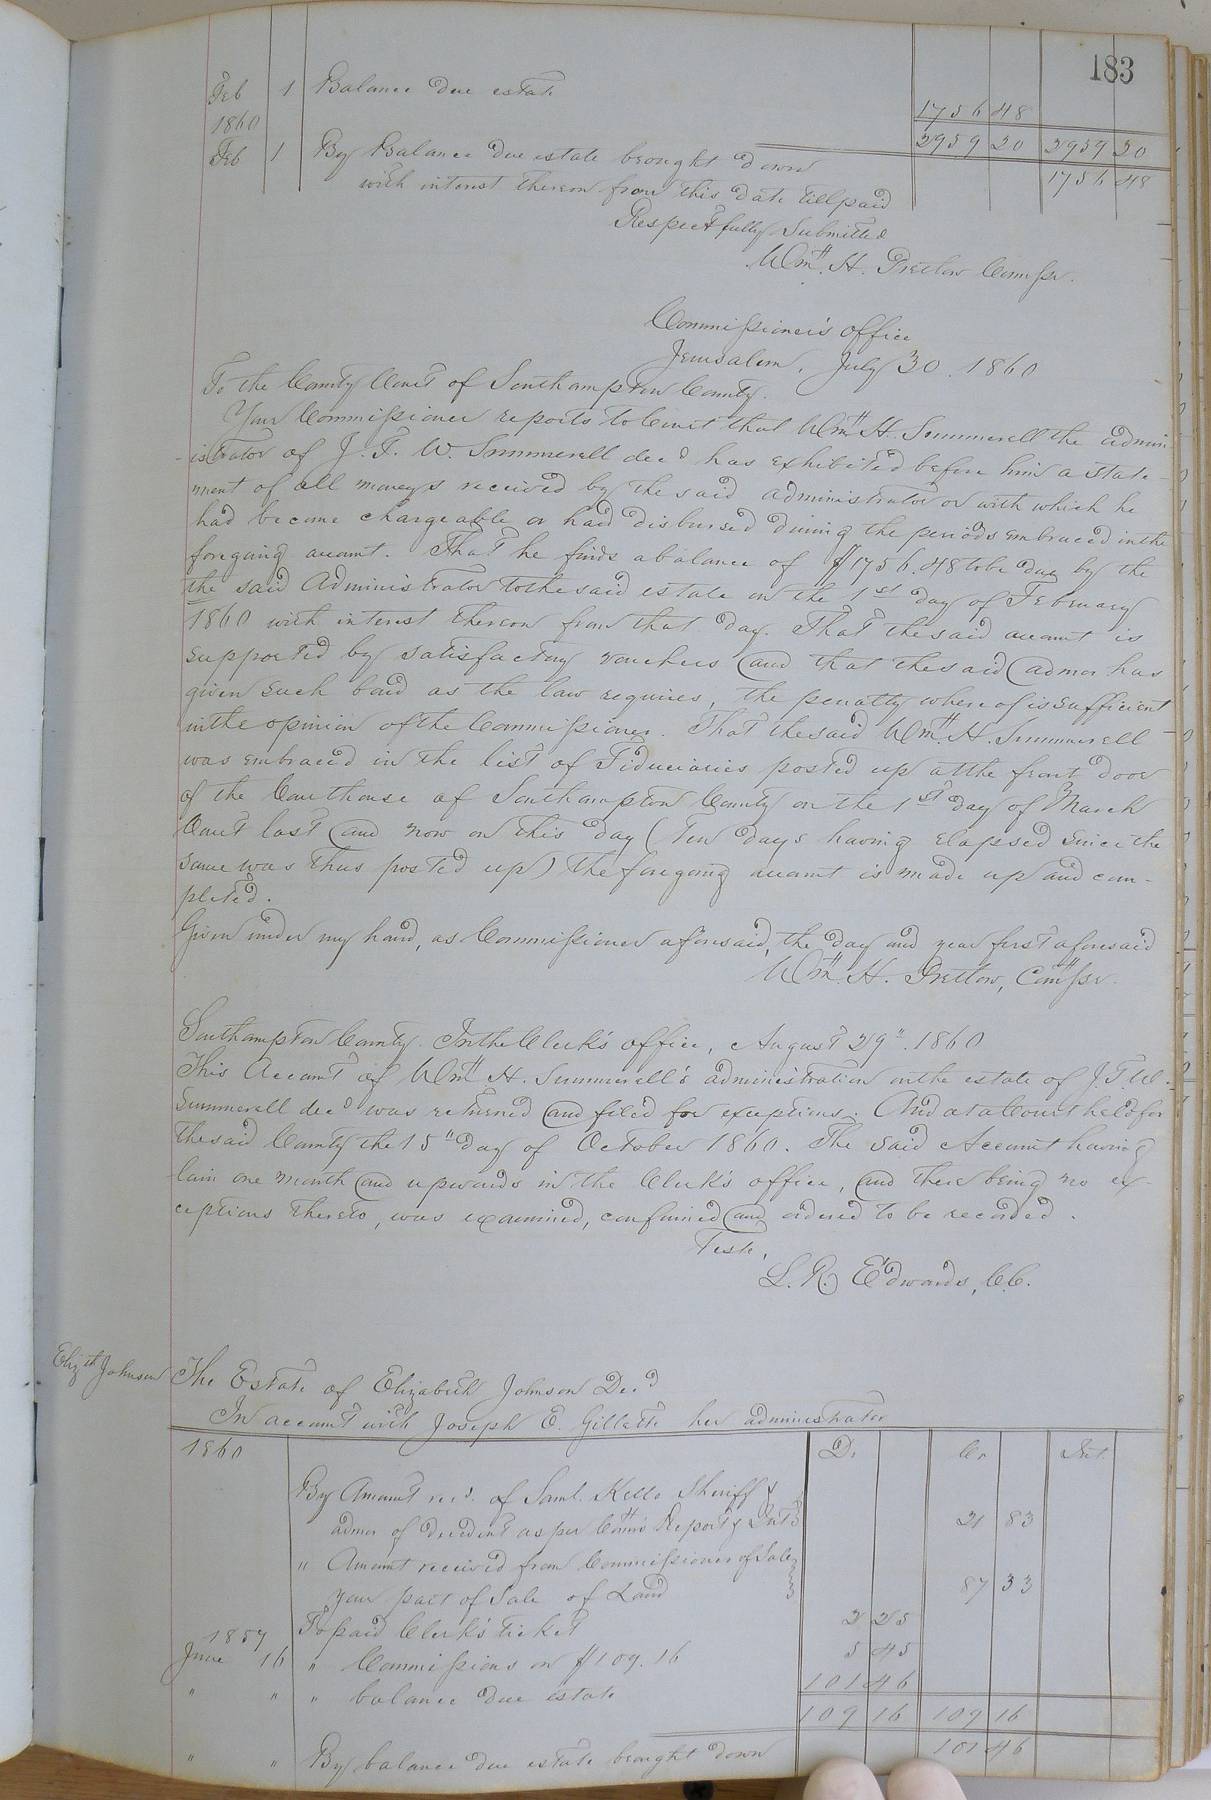 183
Feb 1 Balance due estate 1756 48
1860 2959 20 2959 20
Feb 1 By Balance due estate brought down 1756 48
with interest thereon from this date till paid
Respectfully Submitted
Wm. H. Pretlow Commssr.
Commissioner's office
Jerusalem, July 30. 1860
To the County Court of Southampton County.
Your Commissioner reports to Court that Wm H. Summerell the admin-
istrator of J. T. W. Summerell decd has exhibited before him a state-
ment of all moneys received by the said administrator or with which he
had become chargeable or had disbursed during the periods embraced in the
foregoing account. That he finds a balance of $1756.48 to be due by the
the said Administrator to the said estate on the 1st day of February
1860 with interest thereon from that day. That the said account is
supported by satisfactory vouchers and that the said admor has
given such bond as the law requires, the penalty where of is sufficient
in the opinion of the Commissioner. That the said Wm. H. Summerell
was embraced in the list of Fiduciaries posted up at the front door
of the Courthouse of Southampton County on the 1st day of March
Court last and now on this day (Ten days having elapsed since the
same was thus posted up) the foregoing account is made up and com-
pleted.
Given under my hand, as Commissioner aforesaid, the day and year first aforesaid
Wm. H. Pretlow, Comssr.
Southampton County. In the Clerk's office, August 29". 1860
This Account of Wm H. Summerell's administration on the estate of J. T. W.
Summerell decd was returned and filed for exceptions. And at a Court held for
the said County the 15" day of October 1860. The said Account having
lain one month and upwards in the Clerk's office, and there being no ex-
ceptions thereto, was examined, confirmed and ordered to be recorded.
Teste,
L. R. Edwards, C.C.
Elizth Johnson The Estate of Elizabeth Johnson Decd
In account with Joseph E. Gillette her administrator
1860 Dr Cr Int.
By Amount recd. of Saml. Kello Sheriff &
admor of decedent as per Comrs Report & Int 21 83
" Amount received from Commissioner of Sale
your part of Sale of Land 87 33
To paid Clerk's ticket 2 25
1859
June 16 " Commissions on $109.16 5 45
" " " balance due estate 101 46
109 16 109 16
" " By balance due estate brought down 101 46